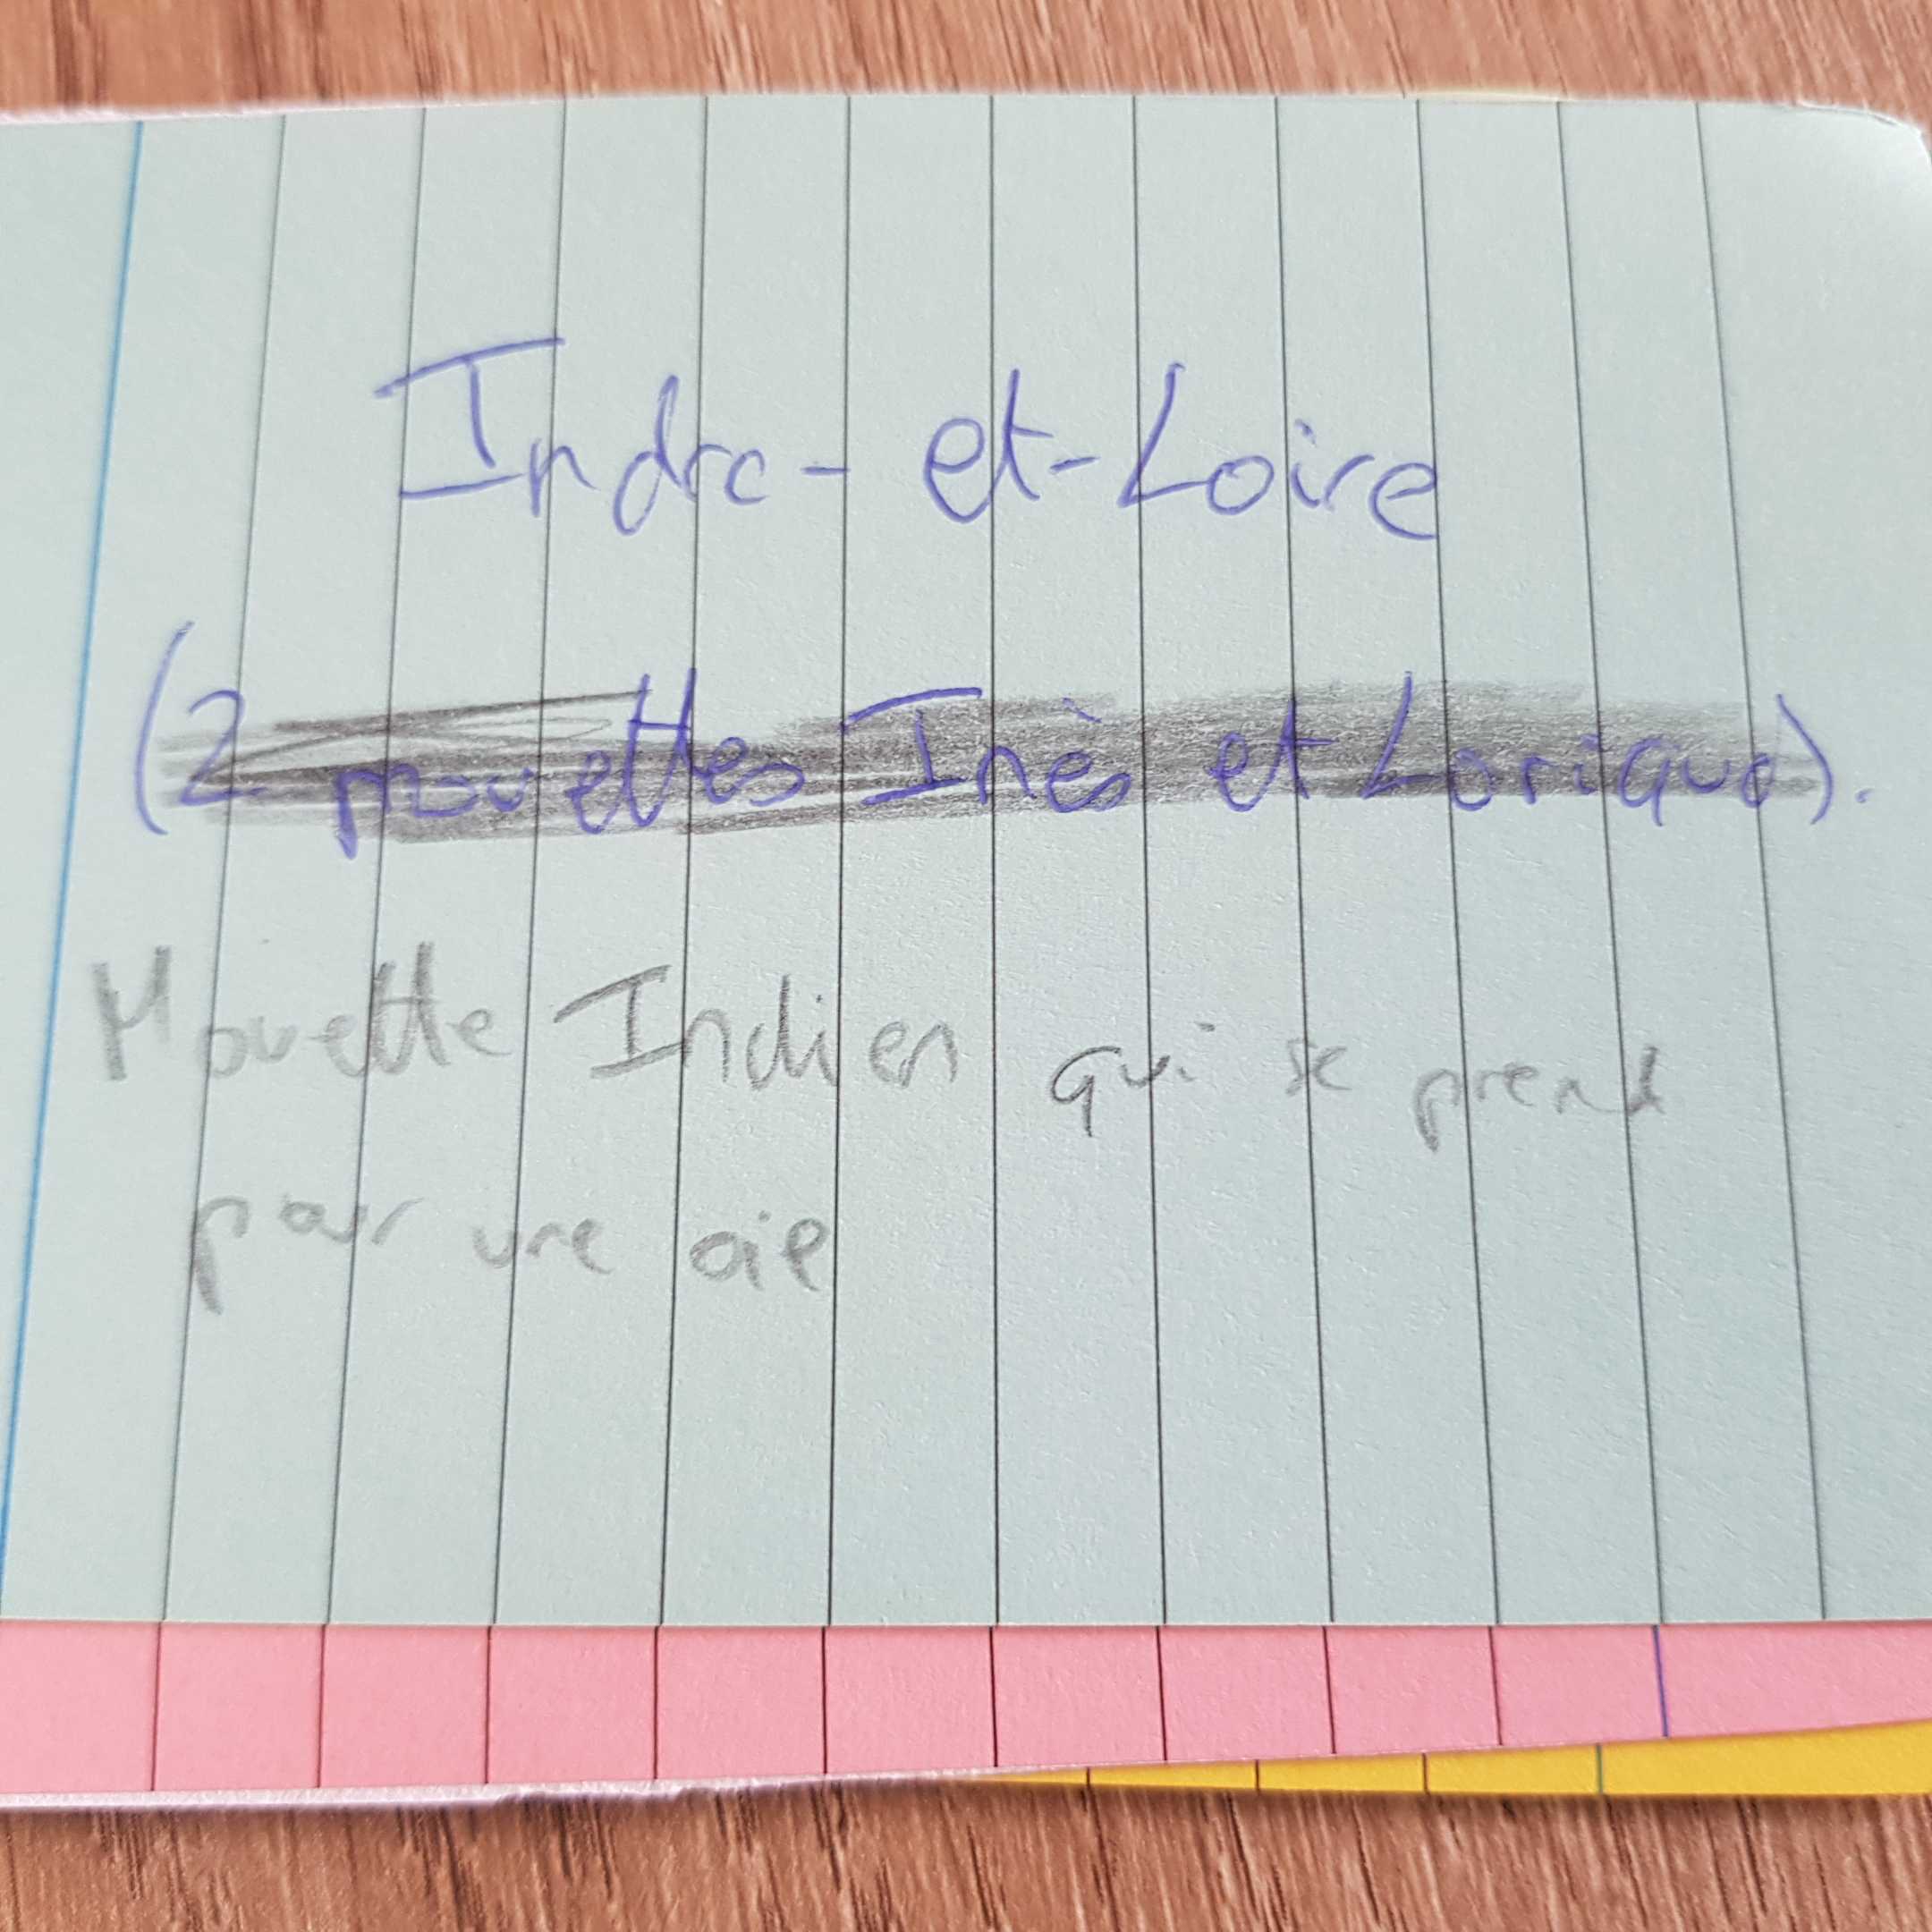 Indre-et-Loire
(2 mouettes Inès et Lorique).
Mouette Indien qui se prend
pour une oie